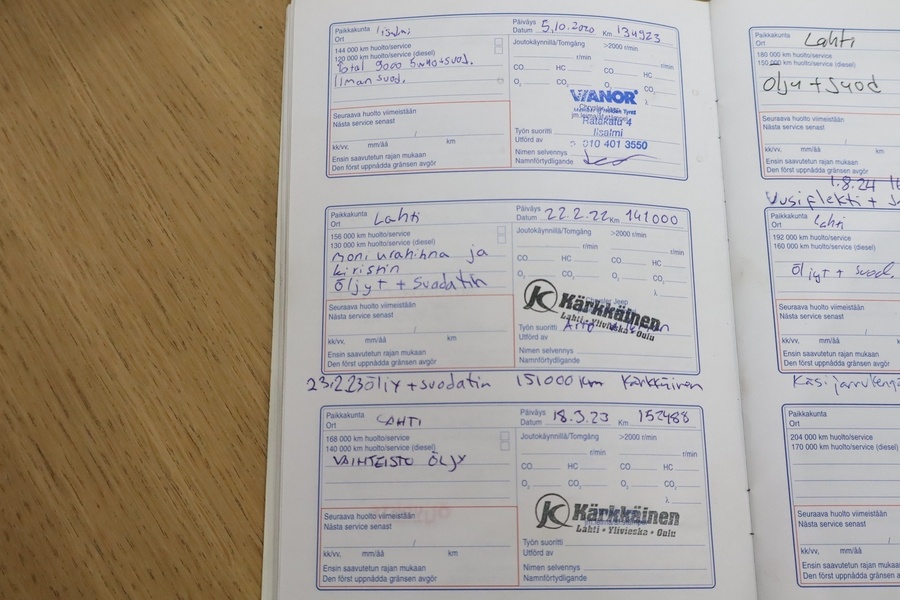 Paikkakunta Iisalmi
Ort
Päiväys
Datum 5.10.2020 Km 134923
144 000 km huolto/service
120 000 km huolto/service (diesel)
Total 9000 5w40+suod.
Ilman suod.
Joutokäynnillä/Tomgång >2000 r/min
r/min r/min
CO HC CO HC
O₂ CO₂ O₂ CO₂
λ
VIANOR
Ratakatu 4
Iisalmi
010 401 3550
Seuraava huolto viimeistään
Nästa service senast
/
kk/vv. mm/åå km
Ensin saavutetun rajan mukaan
Den först uppnådda gränsen avgör
Työn suoritti
Utförd av
Nimen selvennys
Namnförtydligande
Paikkakunta Lahti
Ort
Päiväys
Datum 22.2.22 Km 141000
156 000 km huolto/service
130 000 km huolto/service (diesel)
moniurahihna ja
kiristin
Öljyt + suodatin
Joutokäynnillä/Tomgång >2000 r/min
r/min r/min
CO HC CO HC
O₂ CO₂ O₂ CO₂
λ
Kärkkäinen
Lahti • Ylivieska • Oulu
Seuraava huolto viimeistään
Nästa service senast
/
kk/vv. mm/åå km
Ensin saavutetun rajan mukaan
Den först uppnådda gränsen avgör
Työn suoritti
Utförd av
Nimen selvennys
Namnförtydligande
23.2.23 öljy + suodatin 151000 km Kärkkäinen
Paikkakunta LAHTI
Ort
Päiväys
Datum 18.3.23 Km 152488
168 000 km huolto/service
140 000 km huolto/service (diesel)
VAIHTEISTO ÖLJY
Joutokäynnillä/Tomgång >2000 r/min
r/min r/min
CO HC CO HC
O₂ CO₂ O₂ CO₂
λ
Kärkkäinen
Lahti • Ylivieska • Oulu
Seuraava huolto viimeistään
Nästa service senast
/
kk/vv. mm/åå km
Ensin saavutetun rajan mukaan
Den först uppnådda gränsen avgör
Työn suoritti
Utförd av
Nimen selvennys
Namnförtydligande
Paikkakunta Lahti
Ort
180 000 km huolto/service
150 000 km huolto/service (diesel)
Öljy + suod
Seuraava huolto viimeistään
Nästa service senast
/
kk/vv. mm/åå km
Ensin saavutetun rajan mukaan
Den först uppnådda gränsen avgör
1.8.24
+
Paikkakunta Lahti
Ort
192 000 km huolto/service
160 000 km huolto/service (diesel)
Öljyt + suod.
Seuraava huolto viimeistään
Nästa service senast
/
kk/vv. mm/åå
Ensin saavutetun rajan mukaan
Den först uppnådda gränsen avgör
Paikkakunta
Ort
204 000 km huolto/service
170 000 km huolto/service
Seuraava huolto viimeistään
Nästa service senast
kk/vv. mm/åå
Ensin saavutetun rajan
Den först uppnådda